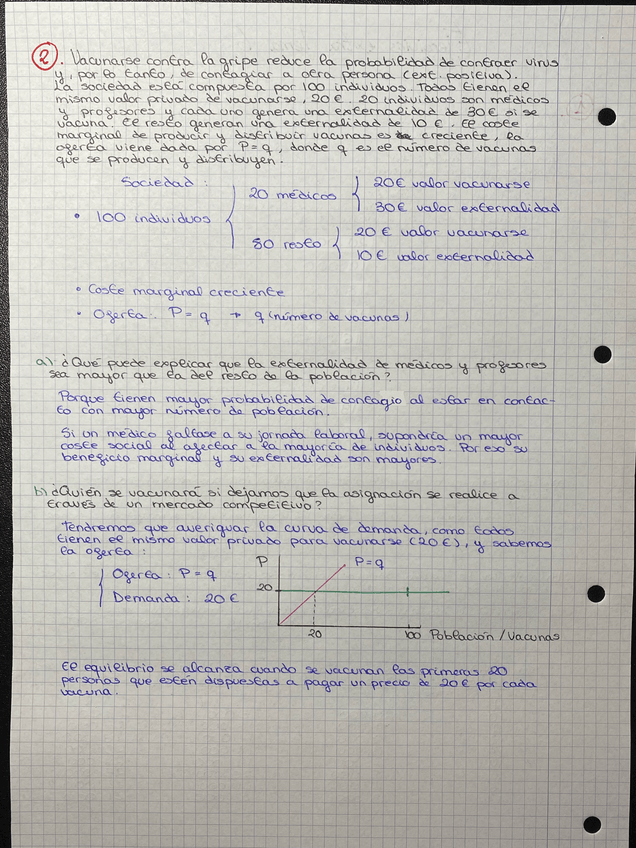 2. Vacunarse contra la gripe reduce la probabilidad de contraer virus
y, por lo tanto, de contagiar a otra persona (ext. positiva).
La sociedad está compuesta por 100 individuos. Todos tienen el
mismo valor privado de vacunarse, 20€. 20 individuos son médicos
y profesores y cada uno genera una externalidad de 30€ si se
vacuna. El resto generan una externalidad de 10€. El coste
marginal de producir y distribuir vacunas es creciente, la
oferta viene dada por P=q, donde q es el número de vacunas
que se producen y distribuyen.
Sociedad:
• 100 individuos
20 médicos
20€ valor vacunarse
30€ valor externalidad
80 resto
20€ valor vacunarse
10€ valor externalidad
• Coste marginal creciente
• Oferta: P=q → q (número de vacunas)
a) ¿Qué puede explicar que la externalidad de médicos y profesores
sea mayor que la del resto de la población?
Porque tienen mayor probabilidad de contagio al estar en contac-
to con mayor número de población.
Si un médico faltase a su jornada laboral, supondría un mayor
coste social al afectar a la mayoría de individuos. Por eso su
beneficio marginal y su externalidad son mayores.
b) ¿Quién se vacunará si dejamos que la asignación se realice a
través de un mercado competitivo?
Tendremos que averiguar la curva de demanda, como todos
tienen el mismo valor privado para vacunarse (20€), y sabemos
la oferta:
Oferta: P=q
Demanda: 20€
P
P=q
20
20
100
Población/Vacunas
El equilibrio se alcanza cuando se vacunan las primeras 20
personas que estén dispuestas a pagar un precio de 20€ por cada
vacuna.